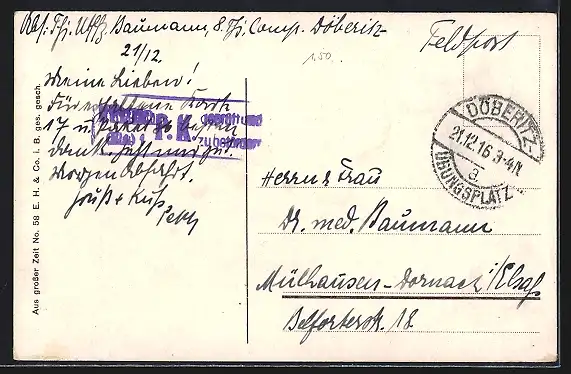 Abs: Uffz. Baumann, 8. Comp. Döberitz
21/12.
Feldpost
1.50
Meine Lieben!
Für erhaltene
17 u. besten
Dank.
Morgen Abfahrt.
Gruß + Kuß
P. K.
geprüft und
zu befördern
DÖBERITZ
21.12.16. 3-4N
a.
ÜBUNGSPLATZ
Herrn u Frau
Dr. med. Baumann
Mülhausen-Dornach i/Elsaß
Belforterstr. 18.
Aus großer Zeit No. 58 E. H. & Co. i. B. ges. gesch.